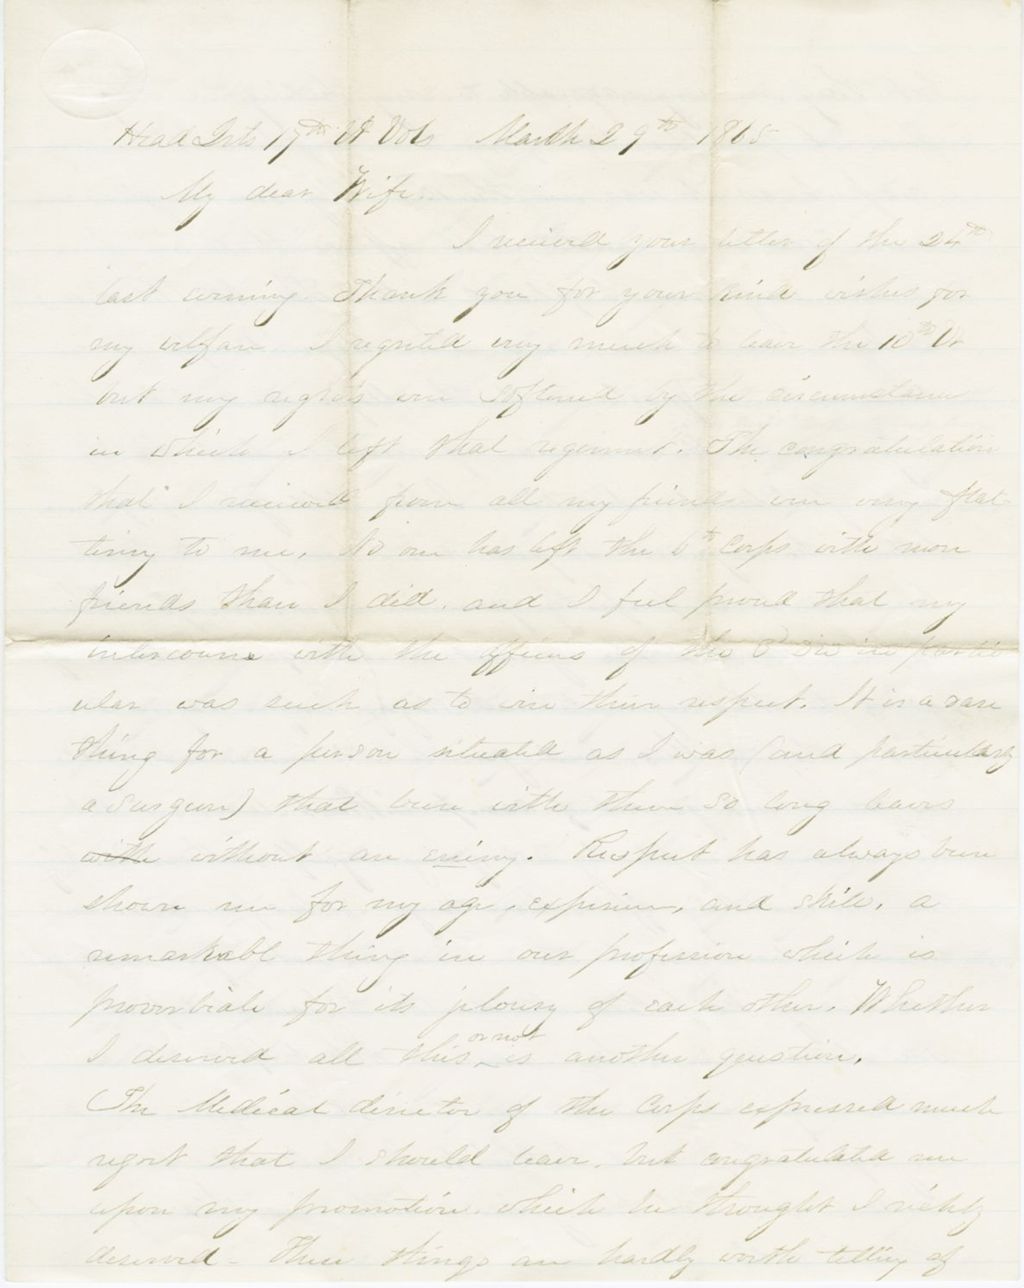 Head Qrts 17th Vt Vols March 29th 1865
My dear Wife.
I received your letter of the 24th
last evening. Thank you for your kind wishes for
my welfare. I regretted very much to leave the 10th Vt
but my regrets were softened by the circumstance
in which I left that regiment. The congratulation
that I received from all my friends were very flat-
tering to me. No one has left the 6th Corps with more
friends than I did. and I feel proud that my
intercourse with the officers of the 3d Div in parti
cular was such as to win their respect. It is a rare
thing for a person situated as I was (and particularly
a surgeon) that been with them so long leaves
with without an enimy. Respect has always been
shown me for my age, experience, and skill, a
remarkabl thing in our profession which is
proverbiale for its jelousy of each other. Whether
I deserved all this or not is another question.
The Medical director of the Corps expressed much
regret that I should leave, but congratulated me
upon my promotion. which he thought I richly
deserved - These things are hardly worth telling of